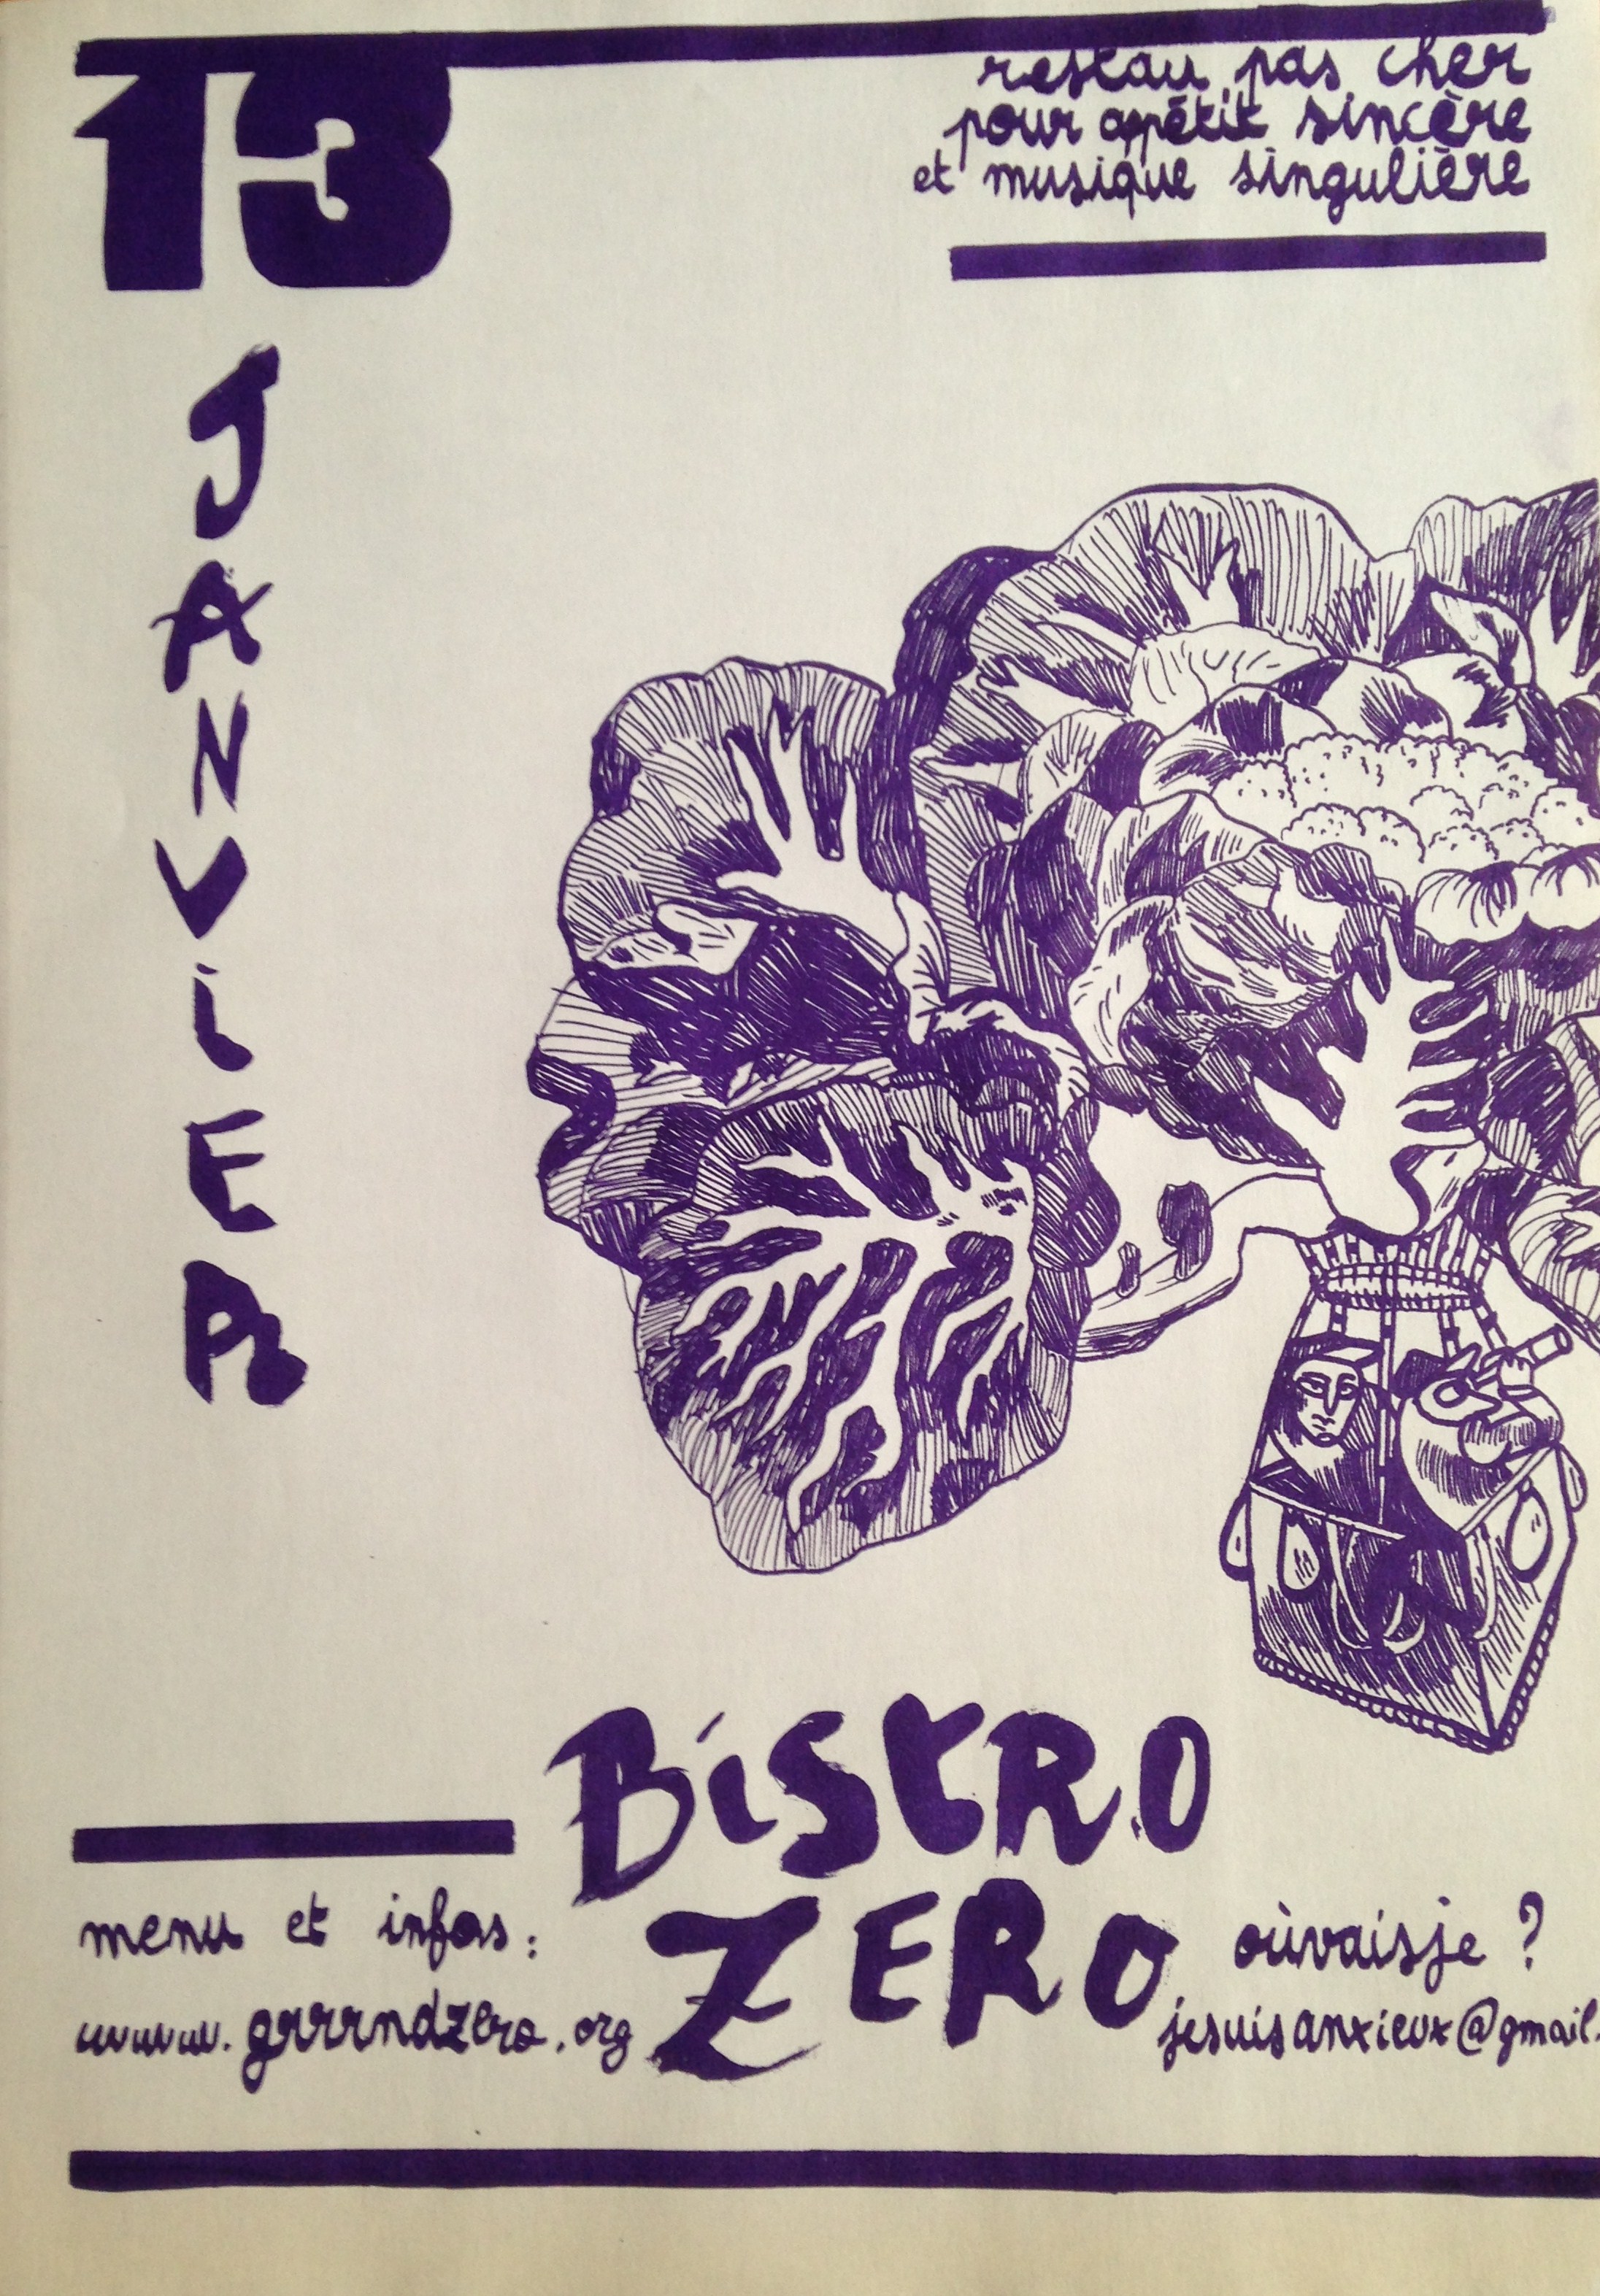 13
JANViER
restau pas cher
pour appétit sincère
et musique singulière
BiStRO
ZERO
menu et infos:
www.grrrndzero.org
oùvaisje ?
jesuisanxieux@gmail.